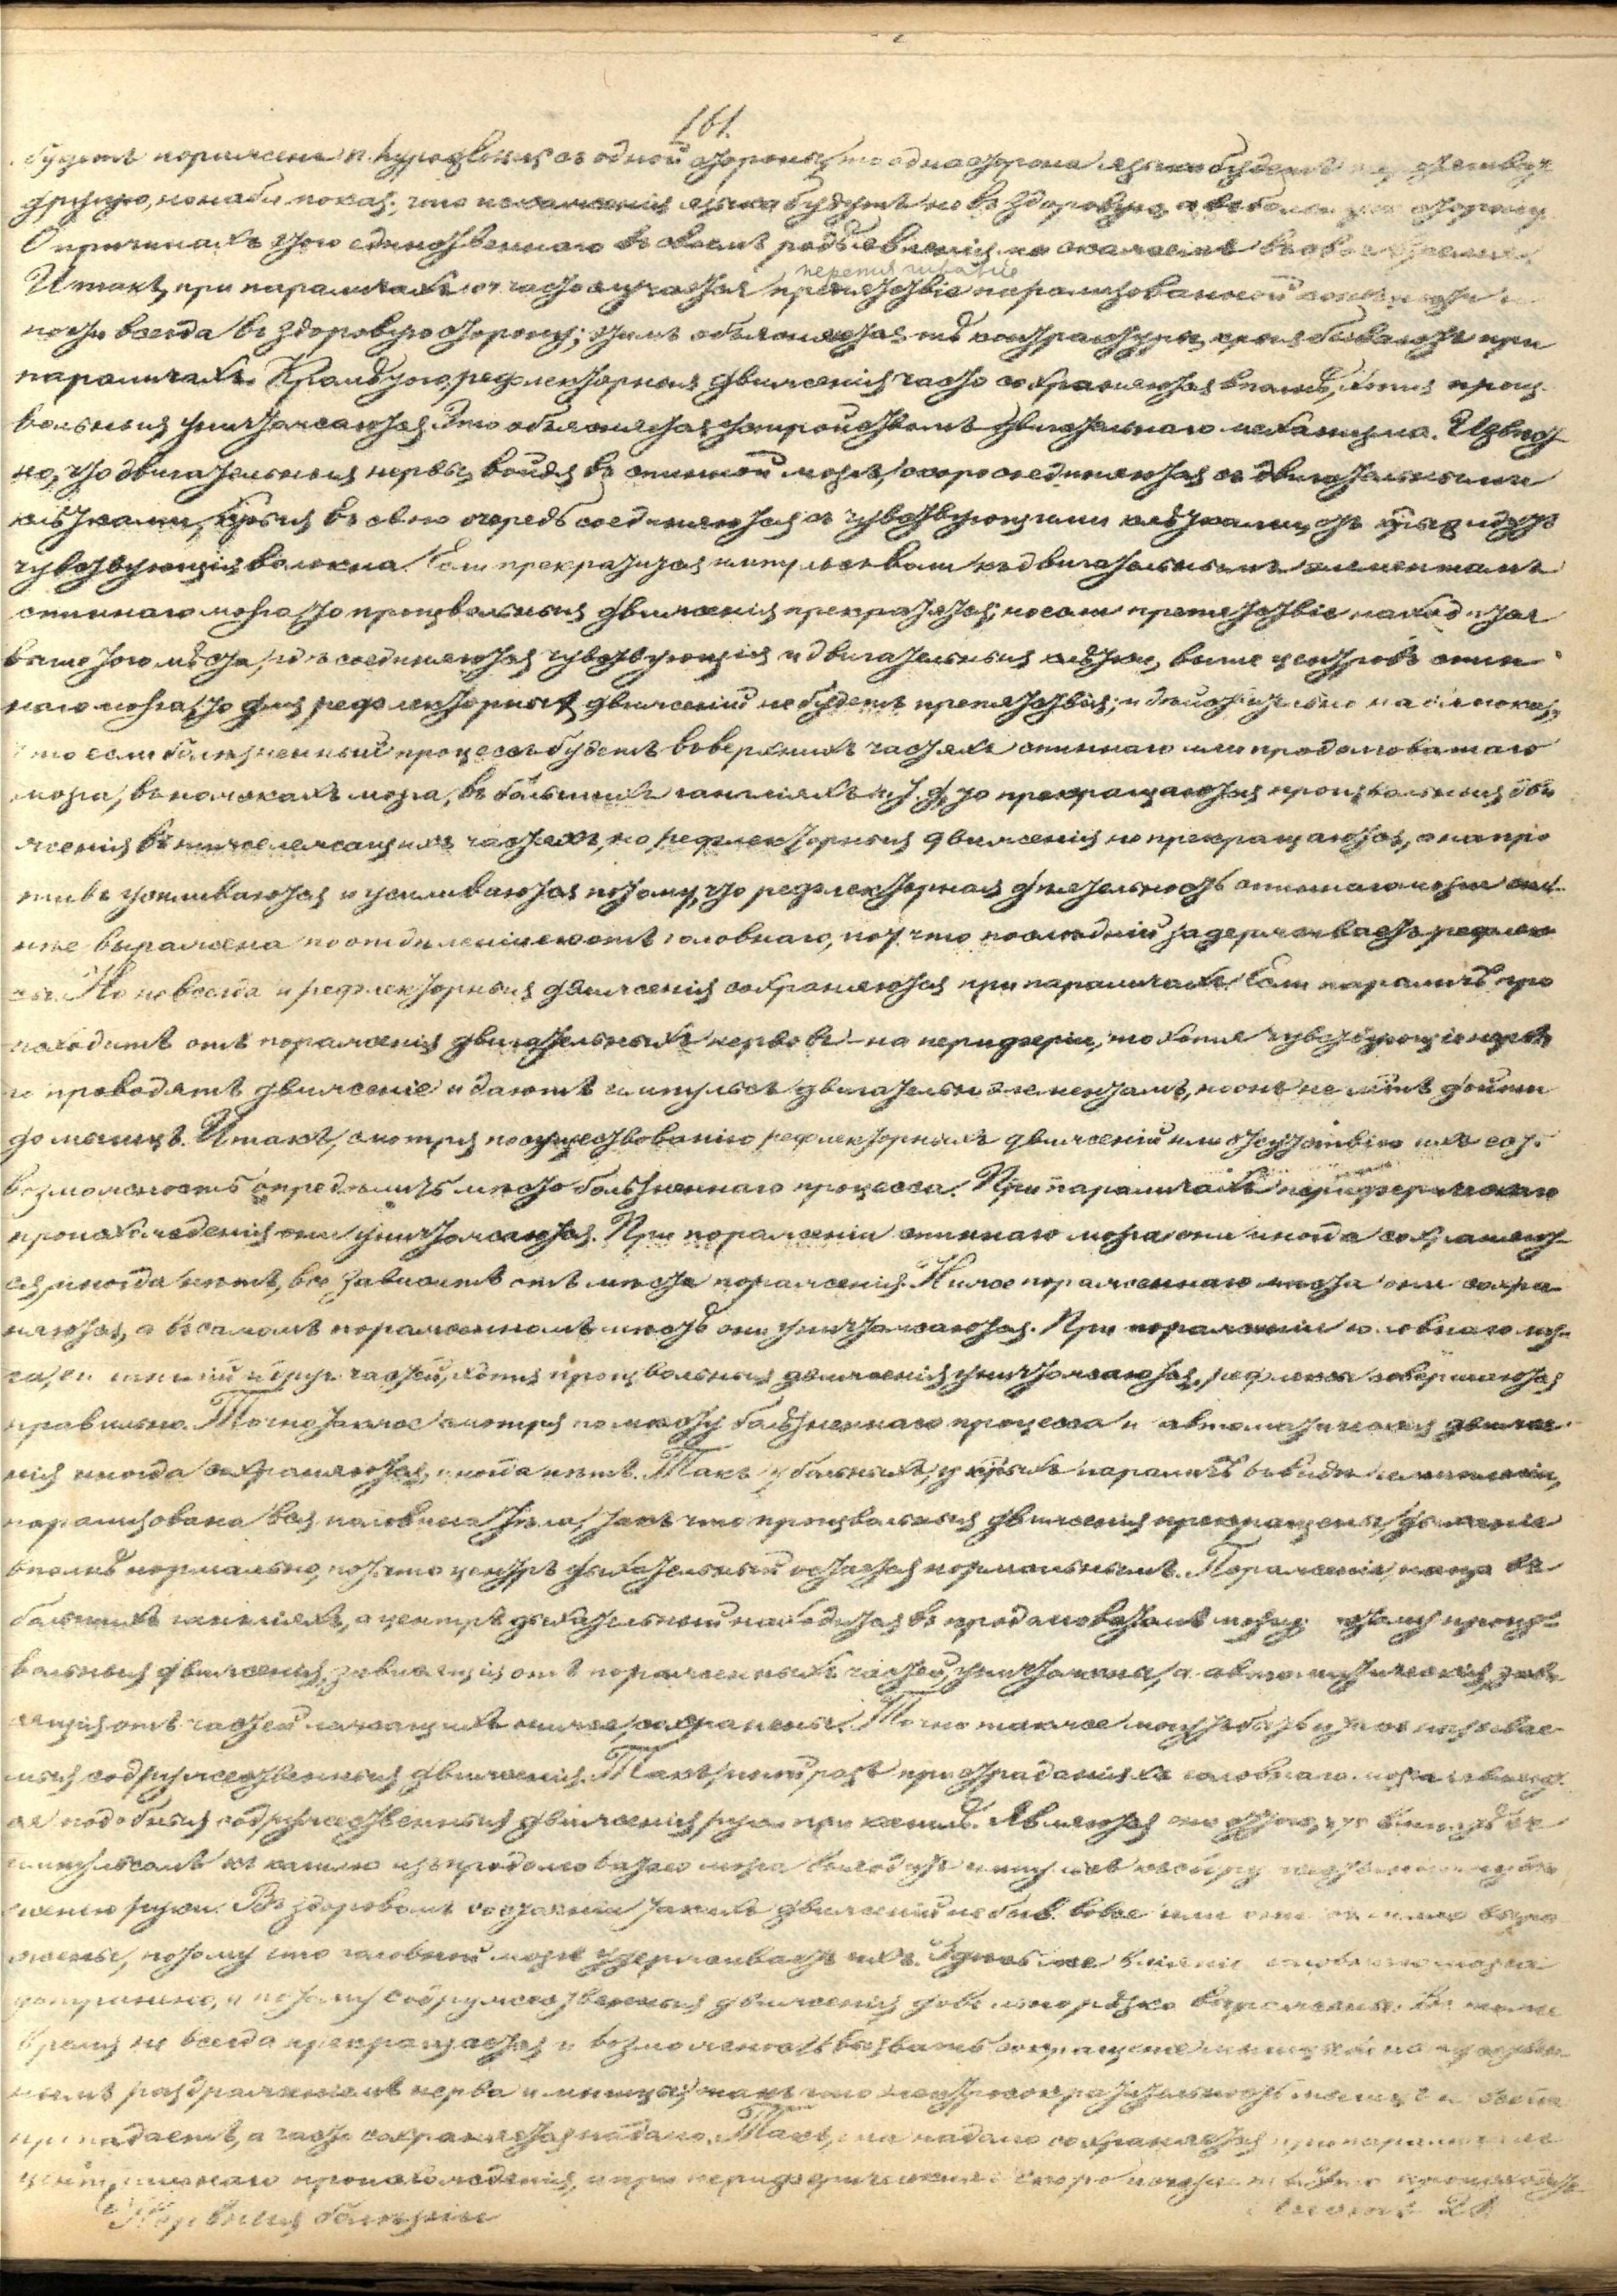 161.
будетъ поражена п. hypoglossus съ одной стороны, то одна сторона языка будетъ
другую, но наобл. показ., что искаженія языка будутъ не въ здоровую, а въ больную сторону
О причинахъ этого единственнаго въ своемъ родѣ явленія
перетягиваніе
Итакъ, при параличахъ часто случается препятствіе парализованной
ности всегда въ здоровую сторону; этимъ объясняются тѣ контрактуры, кото. бываютъ при
параличахъ. Кромѣ того, рефлекторныя движенія часто сохраняются вполнѣ, хотя произ-
вольныя уничтожаются. Это объясняется устройствомъ двигательнаго механизма. Извѣст-
но, что двигательные нервы, войдя въ спинной мозгъ, скоро соединяются съ двигательными
клѣтками, кот-ыя въ свою очередь соединяются съ чувствующими клѣтками, отъ кот-ыхъ идутъ
чувствующія волокна. Если прекратится импульсъ воли къ двигательнымъ элементамъ
спиннаго мозга, то произвольныя движенія прекратятся; но если препятствіе находится
выше того мѣста, гдѣ соединяются чувствующія и двигательныя клѣтки, выше центровъ спин-
наго мозга, то для рефлекторныхъ движеній не будетъ препятствія; и дѣйствительно наб. показ.,
что если болѣзненный процессъ будетъ въ верхнихъ частяхъ спиннаго или продолговатаго
мозга, въ ножкахъ мозга, въ большихъ гангліяхъ и т. д., то прекращаются произвольныя дви-
женія въ нижележащихъ частяхъ, но рефлекторныя движенія не прекращаются, а напро-
тивъ усиливаются и усиливаются потому, что рефлекторная дѣятельность спиннаго мозга силь-
нѣе выражена по отдѣленіи его отъ головнаго, пот. что послѣдній задерживаетъ рефлек-
сы. Но не всегда и рефлекторныя движенія сохраняются при параличахъ. Если параличъ про-
исходитъ отъ пораженія двигательныхъ нервовъ на периферіи, то хотя чувствующіе нервы
и проводятъ движеніе и даютъ импульсъ двигательн. элементамъ, но онъ не мож. дойти
до мышцъ. Итакъ, смотря по существованію рефлекторныхъ движеній или отсутствію ихъ ест.
возможность опредѣлить мѣсто болѣзненнаго процесса. При параличахъ периферическаго
происхожденія они уничтожаются. При пораженіи спиннаго мозга они иногда сохраняют-
ся, иногда нѣтъ, все зависитъ отъ мѣста пораженія. Ниже пораженнаго мѣста они сохра-
няются, а въ самомъ пораженномъ мѣстѣ они уничтожаются. При пораженіи головнаго моз-
га, и друг. частей, хотя произвольныя движенія уничтожаются, рефлексы совершаются
правильно. Точно также смотря по мѣсту болѣзненнаго процесса и автоматическія движе-
нія иногда сохраняются, иногда нѣтъ. Такъ у больныхъ, у кот-ыхъ параличъ въ видѣ гемиплегіи,
парализована вся половина тѣла, такъ что произвольныя движенія прекращены, дыханіе
вполнѣ нормально, пот. что центръ дыхательный остается нормальнымъ. Пораженіе въ
большихъ гангліяхъ, а центръ дыхательный находится въ продолговатомъ мозгу; произ-
вольныя движенія, зависящія отъ пораженныхъ частей, уничтожены, а автоматическія, зави-
сящія отъ частей лежащихъ ниже, сохранены. Точно также могутъ быть и такъ называе-
мыя содружественныя движенія. Такъ, при страданіяхъ головнаго мозга
подобныя содружественныя движенія руки при кашлѣ. Являются они оттого, что вмѣстѣ съ
импульсомъ къ кашлю изъ продолговатаго мозга выходитъ импульсъ
женію руки. Въ здоровомъ состояніи такихъ движеній не быв. вовсе или они выра-
жены, потому что головной мозгъ удерживаетъ ихъ. Здѣсь же вліяніе головнаго мозга
устранено, и потому содружественныя движенія довольно рѣзко выражены. Въ
время не всегда прекращается и возможность вызвать сокращеніе мышцы
нымъ раздраженіемъ нерва и мышцы, такъ что электросократительность мышцъ не всегда
пропадаетъ, а часто сохраняется надолго. Такъ, она надолго сохраняется при параличахъ
центральнаго происхожденія, а при периферическихъ скоро
Нервныя болѣзни